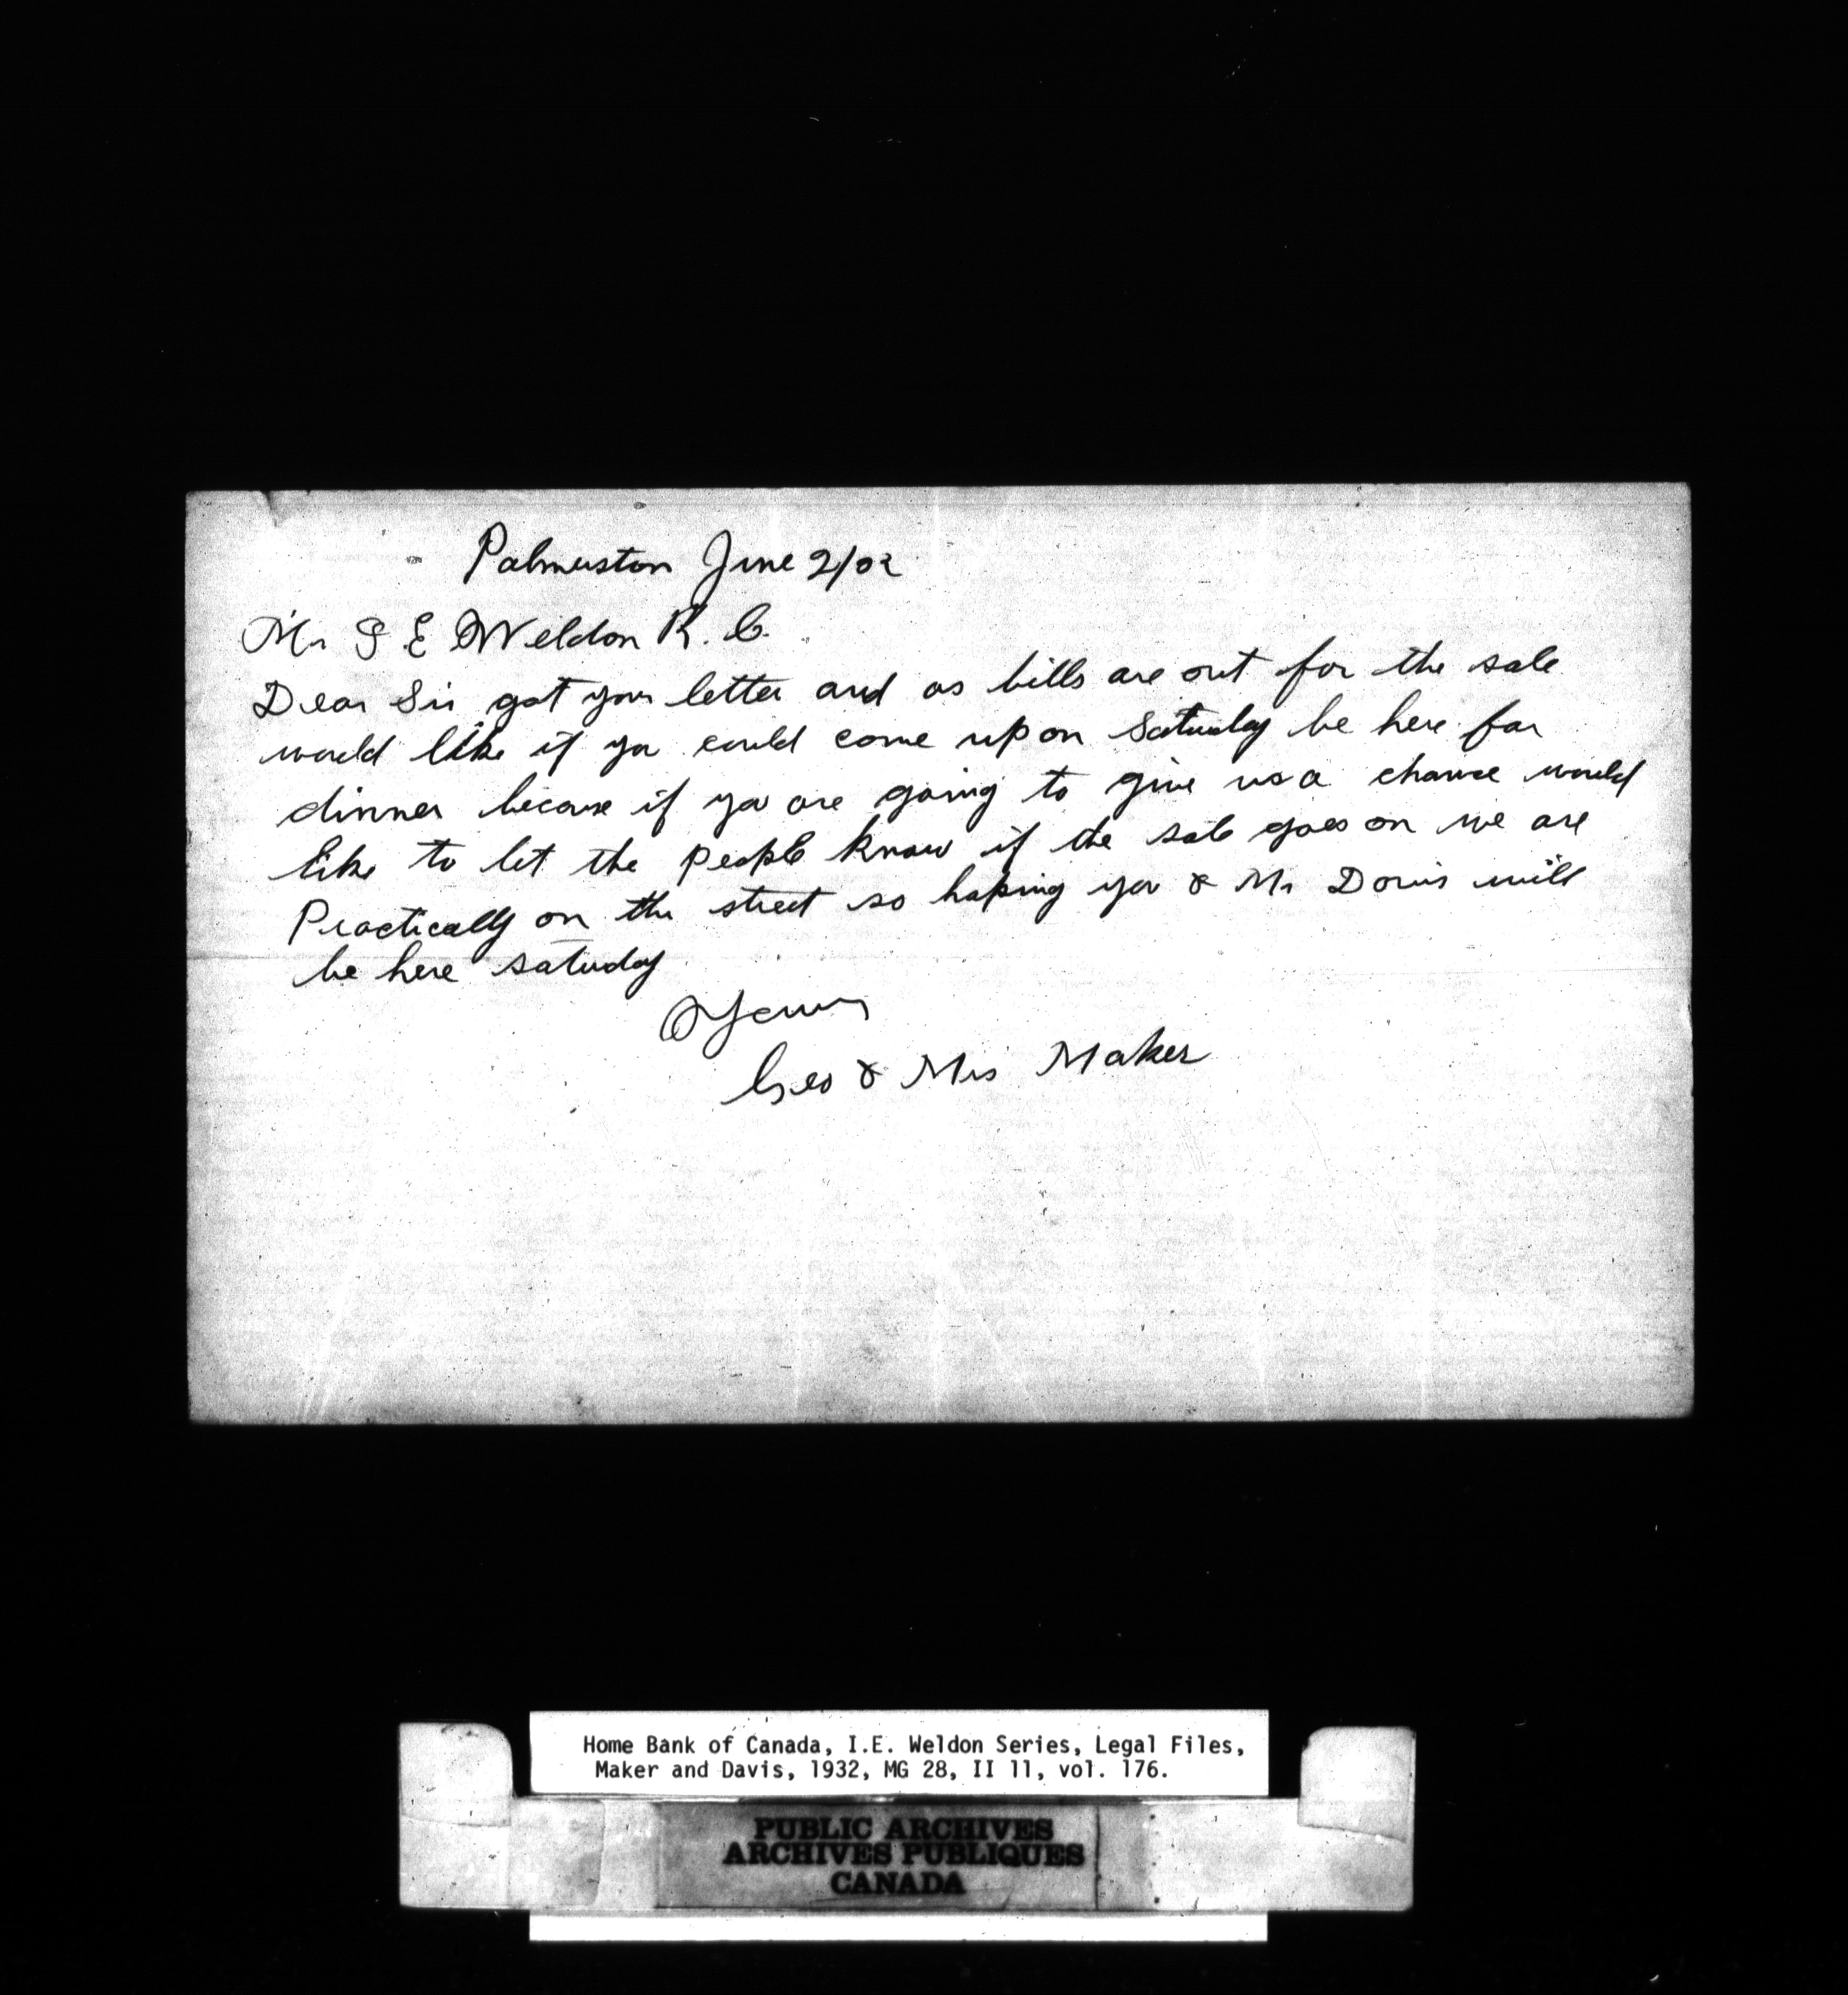 Palmerston June 2/32
Mr I E Weldon K. C.
Dear Sir got your letter and as bills are out for the sale
would like if you could come up on Saturday be here for
dinner because if you are going to give us a chance would
like to let the people know if the sale goes on we are
Practically on the street so hoping you & Mr Davis will
be here saturday
Yours
Geo & Mrs Maker
Home Bank of Canada, I.E. Weldon Series, Legal Files,
Maker and Davis, 1932, MG 28, II 11, vol. 176.
PUBLIC ARCHIVES
ARCHIVES PUBLIQUES
CANADA